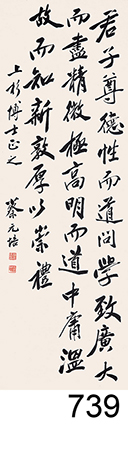 君子尊德性而道問學致廣大
而盡精微極高明而道中庸溫
故而知新敦厚以崇禮
上杉博士正之
蔡元培
739